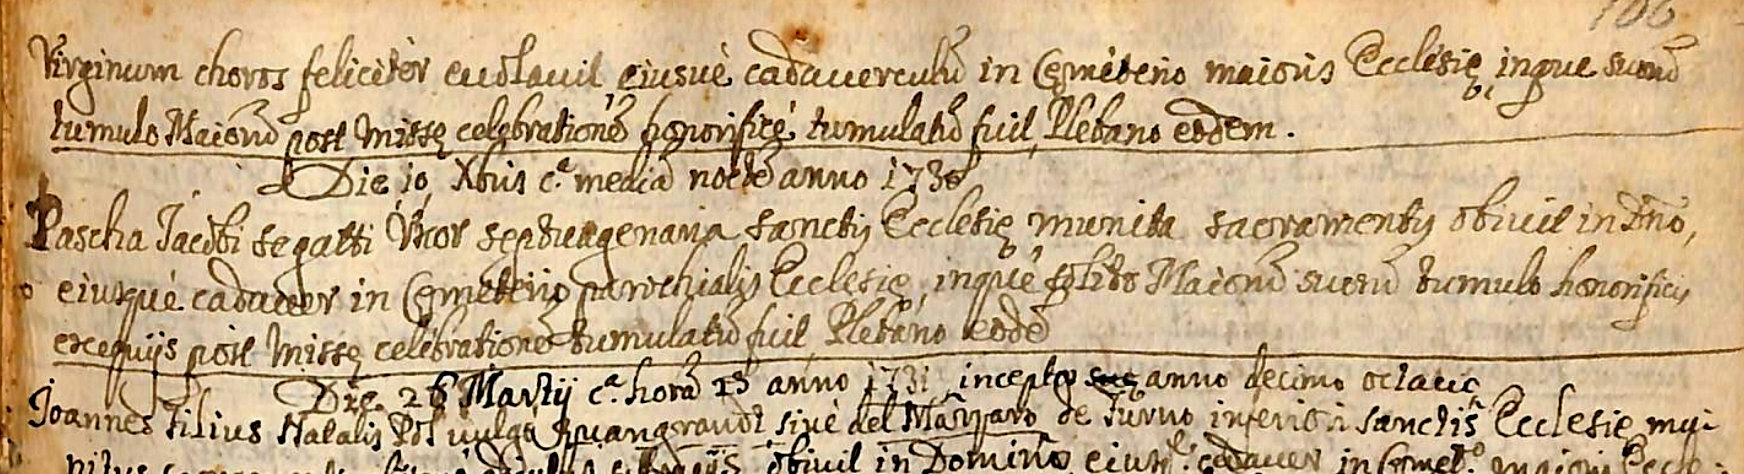 106
Virginum choros felicitèr euolauit, eiusuè cadauerculũ in Cęmeterio maioris Ecclesię, inque suorũ
tumulo Maiorũ post Missę celebrationẽ honorificè tumulatũ fuit, Plebano eodem.
Die 10 Xbris c.ª mediã noctẽ anno 1730
Pascha Jacobi Segatti Uxor septuagenaria sanctis Ecclesię munita sacramentis obiuit in Dño,
eiusquè cadauer in Cęmeterio parochialis Ecclesię, inquè solito Maiorũ suorũ tumulo honorificis
exequijs post Missę celebrationẽ tumulatũ fuit, Plebano eodẽ
Die 26 Martij c.ª horã 23 anno 1731 incepto anno decimo octauo
Joannes Filius Natalis Pol uulgò siuè del de Turno inferiori sanctis Ecclesię mu-
nitus obiuit in Domino, eiusq. cadauer in Cęmet.º